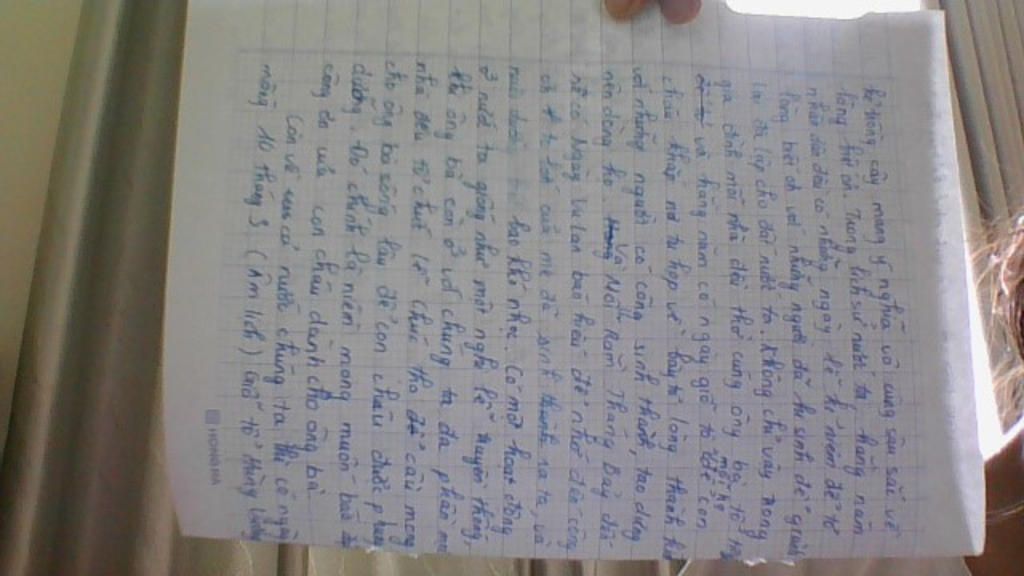 kẻ trồng cây mang ý nghĩa vô cùng sâu sắc về
lòng biết ơn. Trong lịch sử nước ta, hằng năm
nhân dân đều có những ngày lễ kỉ niệm để tỏ
lòng biết ơn với những người đã hi sinh để giành
lại độc lập cho đất nước ta. Không chỉ vậy trong
gia đình mỗi nhà đều thờ cúng ông bà, tổ
và hằng năm có ngày giỗ tổ để con
cháu khắp nơi tụ họp về bày tỏ lòng thành kính
với những người có công sinh thành, tạo dựng
nên dòng họ. Vào Nỗi Rằm Tháng Bảy
có ngày Vu Lan báo hiếu để nhớ đến công
ơn to lớn của mẹ đã sinh thành ra ta và
nuôi dưỡng bao khó nhọc. Có một hoạt động
ở nước ta giống như một nghi lễ truyền thống,
khi ông bà còn ở với chúng ta đa phần mọi
nhà đều tổ chức lễ chúc thọ để cầu mong
cho ông bà sống lâu để con cháu được phụng
dưỡng. Đó chính là niềm mong muốn báo
công ơn của con cháu dành cho ông bà.
Còn về của cả nước chúng ta thì có ngày
mồng 10 tháng 3 (Âm lịch) Giỗ tổ Hùng Vương
HONGHA